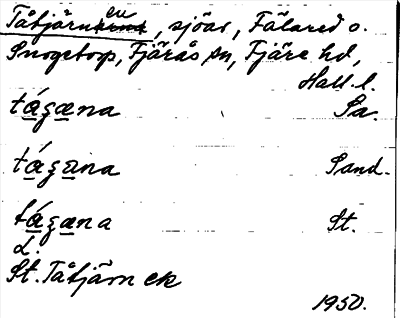 Tåtjärnen, sjöar, Fälared o.
Snogetorp, Fjärås sn, Fjäre hd,
Hall. l.
tá̱ʒæ̱na Pa.
tá̱ʒa̱na Sand.
tá̱ʒæ̱na St.
d.
St. Tåtjärn ek
1950.